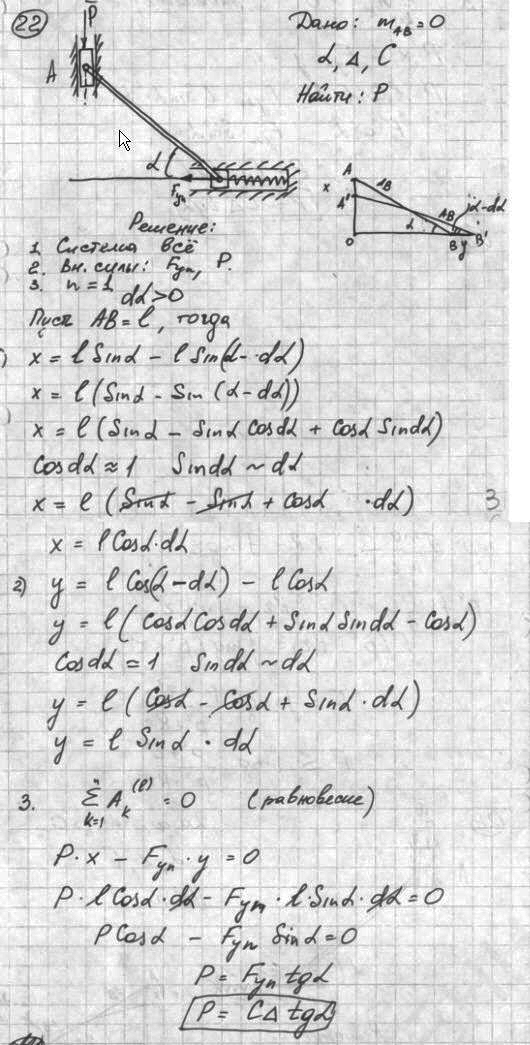 22
P
A
α
Fуп
Дано: m_AB = 0
α, Δ, C
Найти: P
A
x
A'
lB
AB
α-dα
α
O
B
B'
y
Решение:
1. Система всё
2. Вн. силы: Fуп, P.
3. n = 1
dα > 0
Пусть AB = l, тогда
x = l Sinα - l Sin(α - dα)
x = l (Sinα - Sin (α - dα))
x = l (Sinα - Sinα Cosdα + Cosα Sindα)
Cosdα ≈ 1 Sindα ~ dα
x = l (Sinα - Sinα + Cosα · dα)
3
x = l Cosα · dα
2) y = l Cos(α - dα) - l Cosα
y = l (Cosα Cosdα + Sinα Sindα - Cosα)
Cosdα = 1 Sindα ~ dα
y = l (Cosα - Cosα + Sinα · dα)
y = l Sinα · dα
3. n Σ k=1 A_k^(e) = 0 (равновесие)
P · x - Fуп · y = 0
P · l Cosα · dα - Fуп · l · Sinα · dα = 0
P Cosα - Fуп Sinα = 0
P = Fуп tgα
P = CΔ tgα